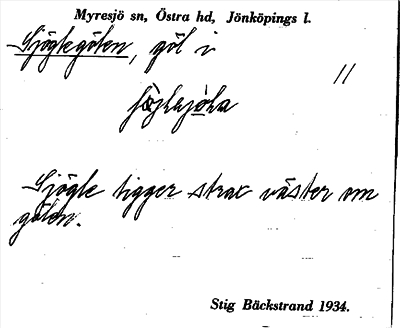 Myresjö sn, Östra hd, Jönköpings l.
Sjöglegölen, göl i
//
Sjögle ligger strax väster om
gölen.
Stig Bäckstrand 1934.